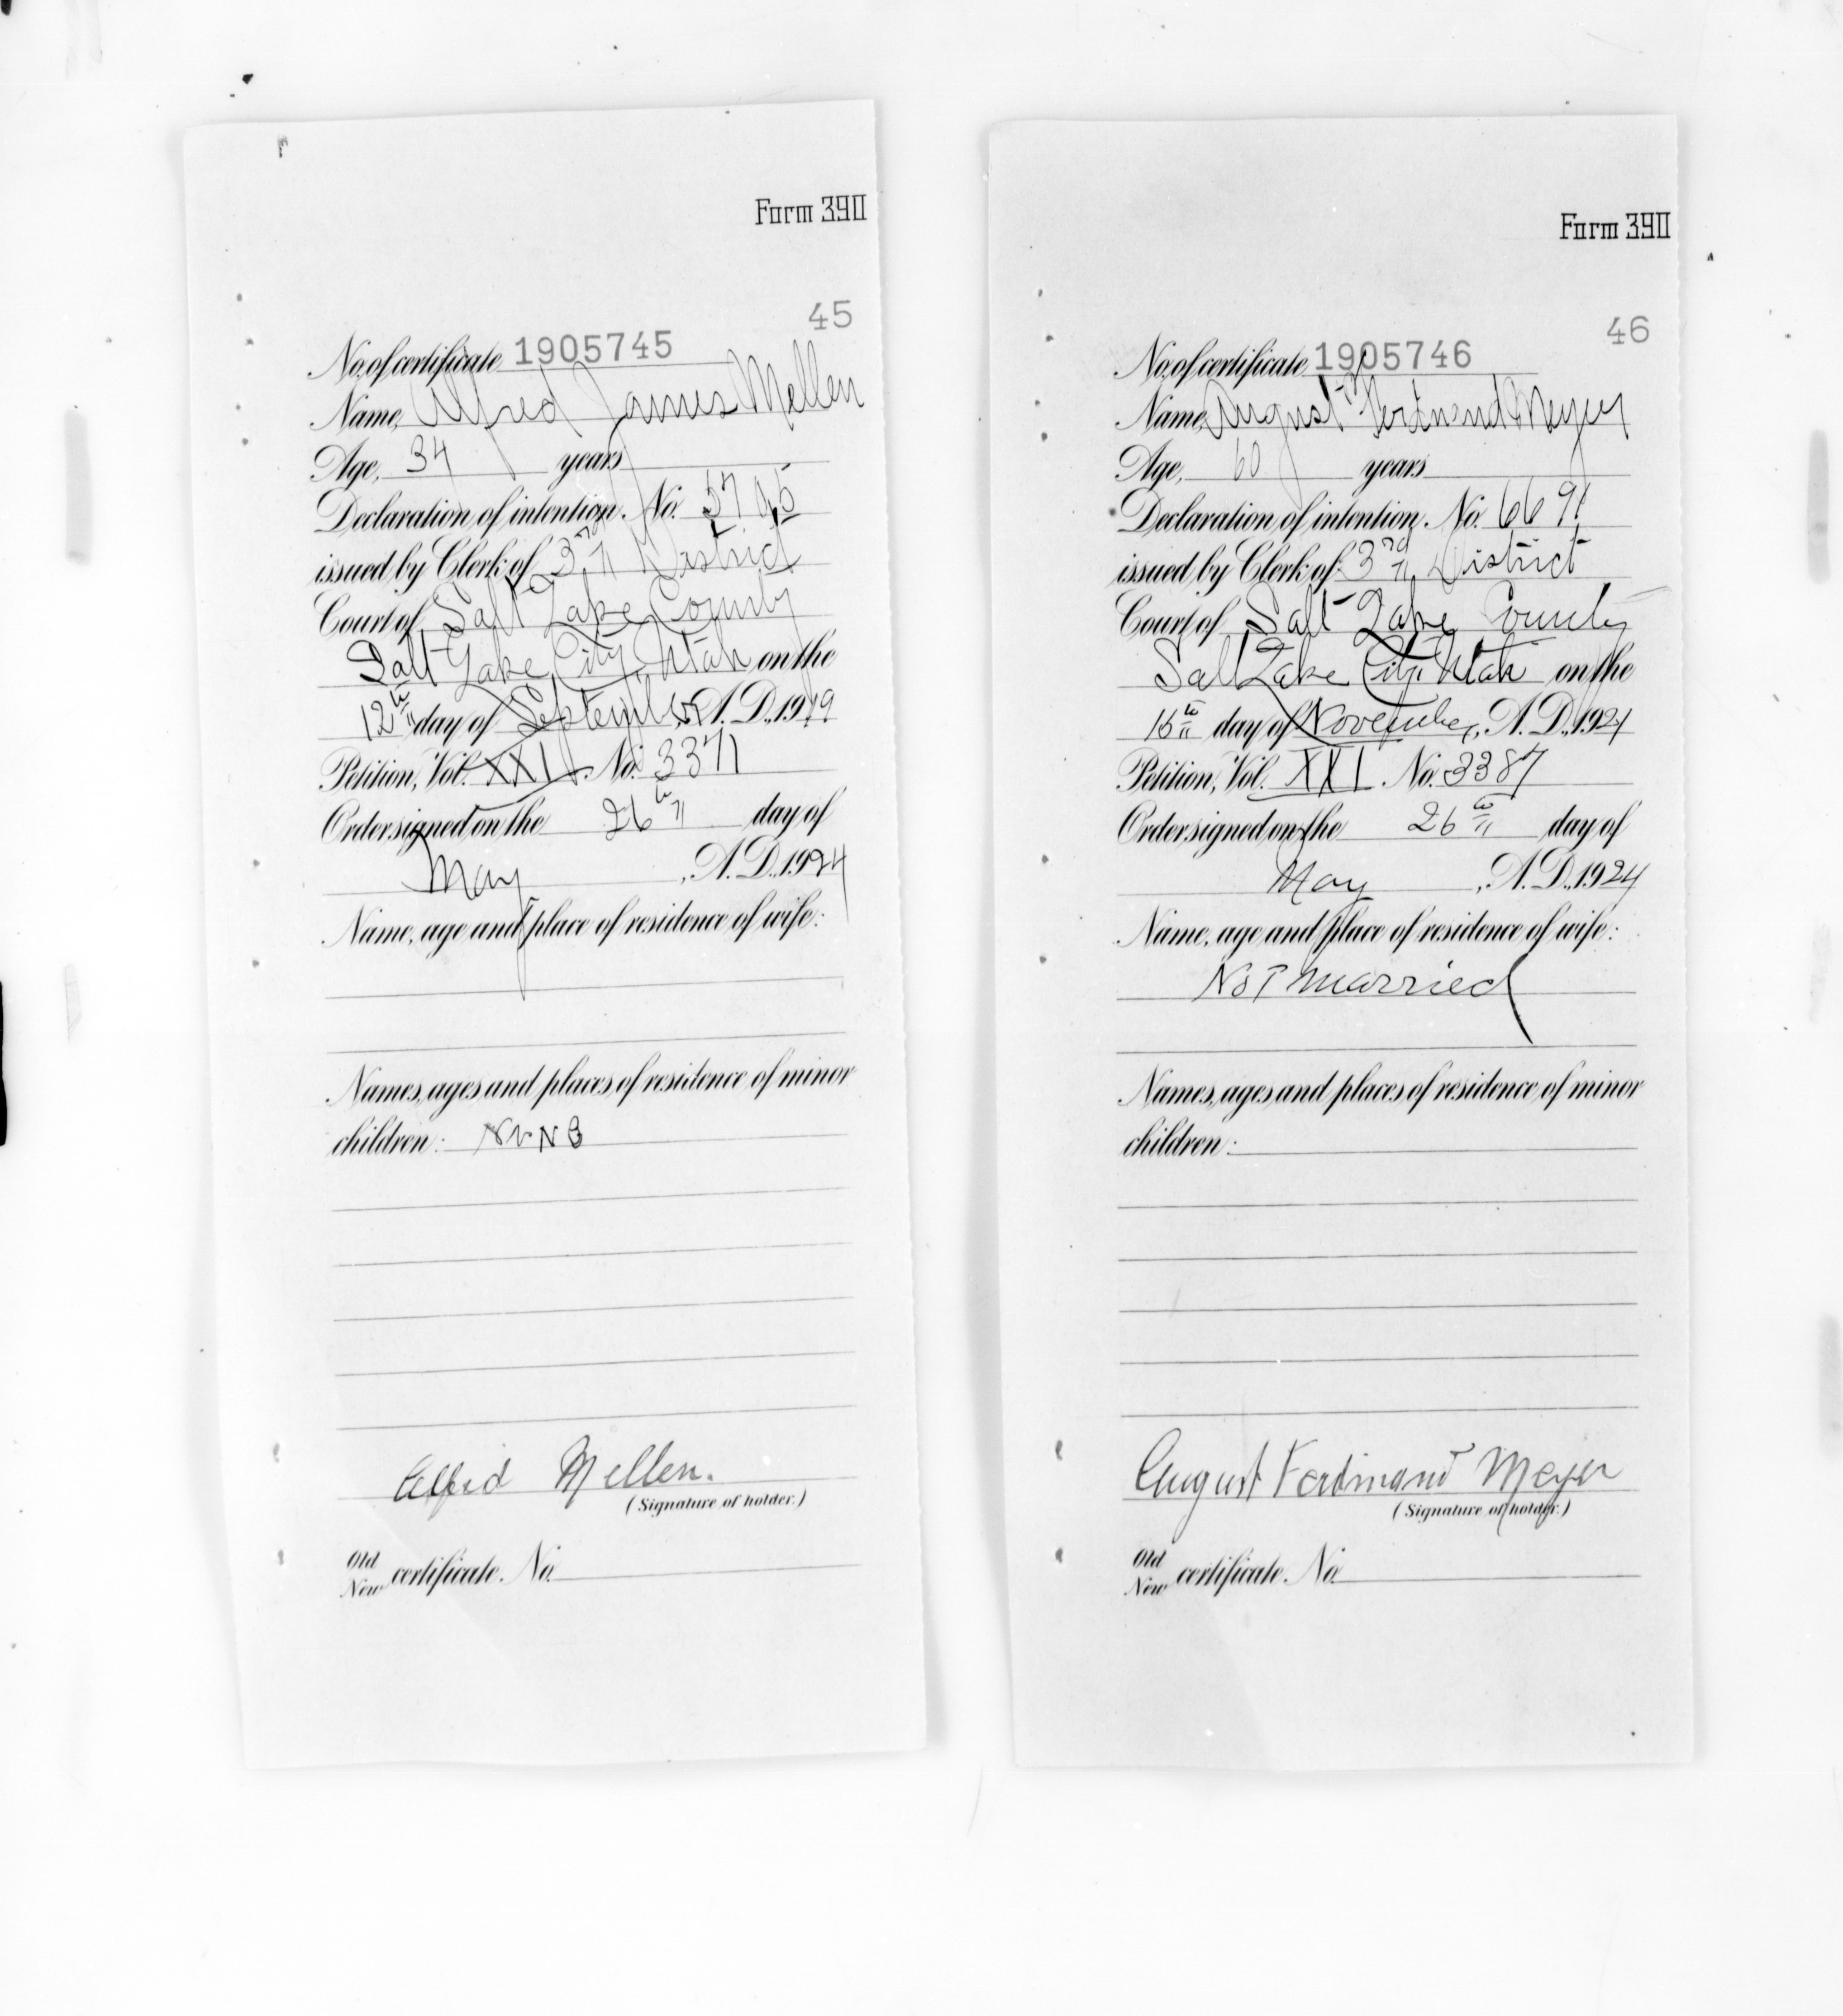 Form 390
45
No. of certificate 1905745
Name, Alfred James Mellen
Age, 34 years
Declaration of intention, No.
issued by Clerk of 3rd District
Court of Salt Lake County
Salt Lake City, Utah on the
12th day of September, A. D., 1919
Petition, Vol. XXI. No. 3371
Order signed on the 26th day of
May, A. D., 1924
Name, age and place of residence of wife:
Names, ages and places of residence of minor
children: NONE
Alfrid Mellen.
(Signature of holder.)
Old
New certificate. No.
Form 390
46
No. of certificate 1905746
Name, August Ferdinand Meyer
Age, 60 years
Declaration of intention, No. 6691
issued by Clerk of 3rd District
Court of Salt Lake County
Salt Lake City, Utah on the
day of November, A. D., 1921
Petition, Vol. XXI. No. 3387
Order signed on the 26th day of
May, A. D., 1924
Name, age and place of residence of wife:
Not married
Names, ages and places of residence of minor
children:
August Ferdinand Meyer
(Signature of holder.)
Old
New certificate. No.